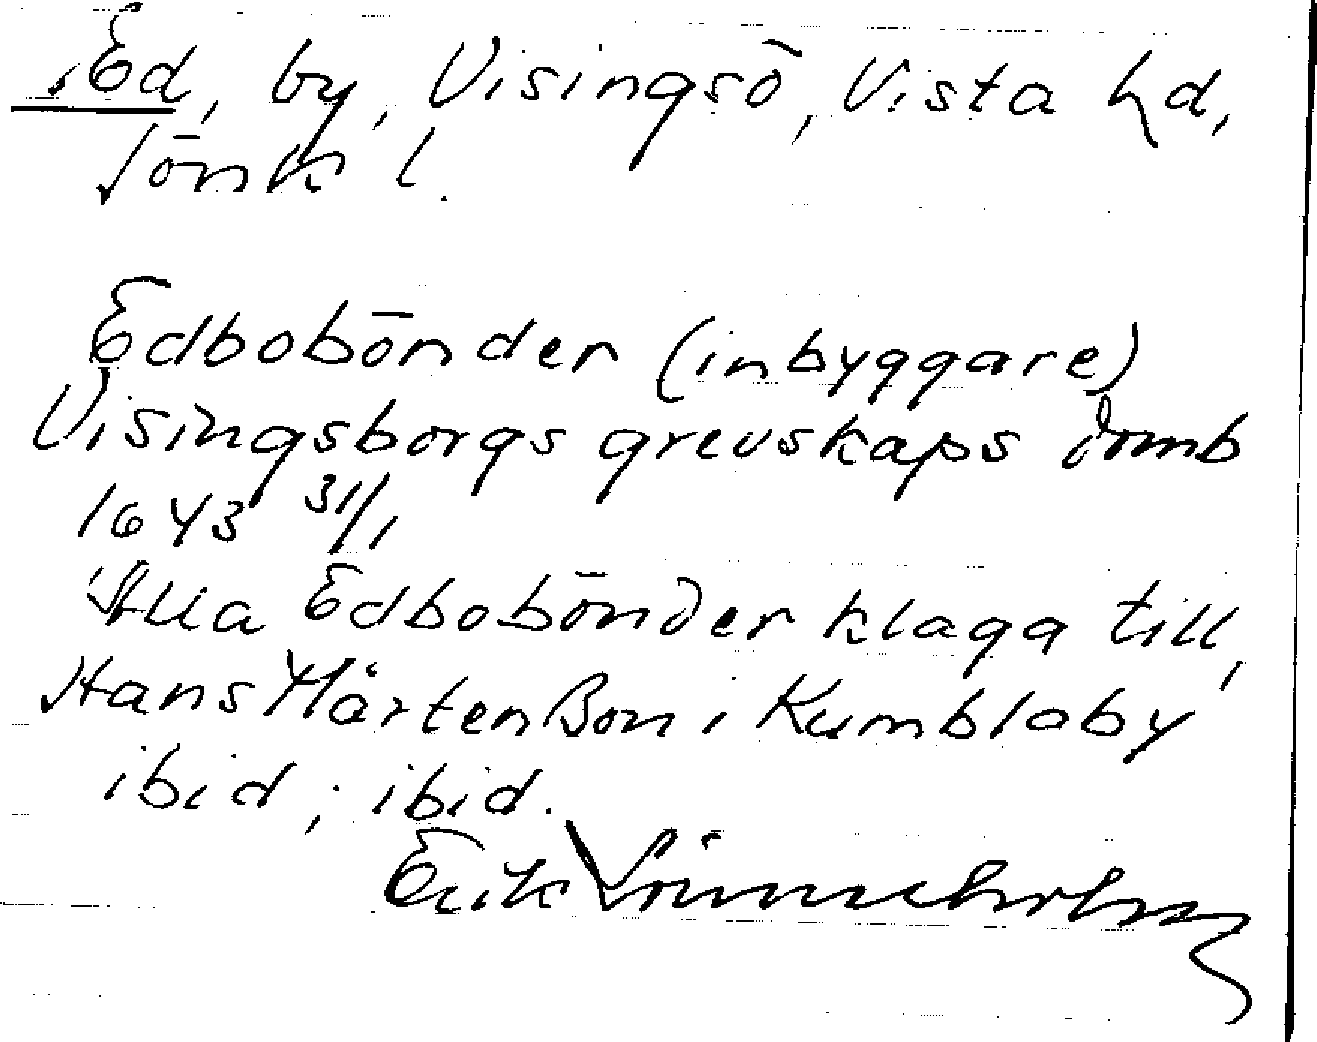 Ed, by, Visingsö, Vista hd,
Jönk l.
Edbobönder (inbyggare)
Visingsborgs grevskaps domb
1643 31/1
Alla Edbobönder klaga till,
Hans Mårtensson i Kumblaby
ibid; ibid.
Erik